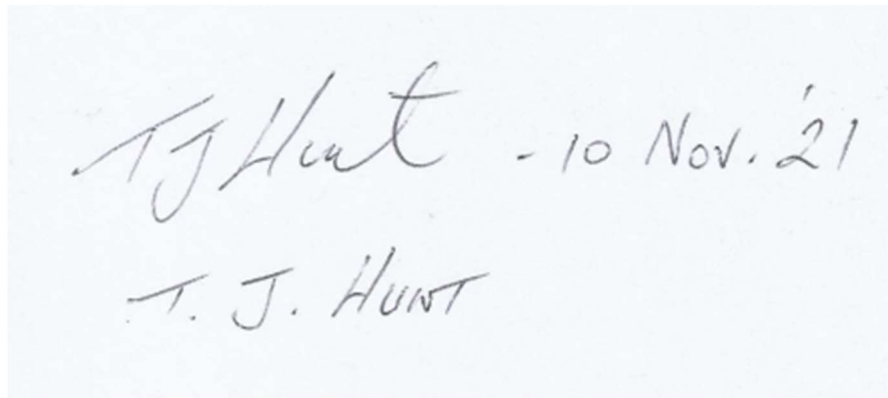 TJ Hunt - 10 Nov. '21
T. J. HUNT